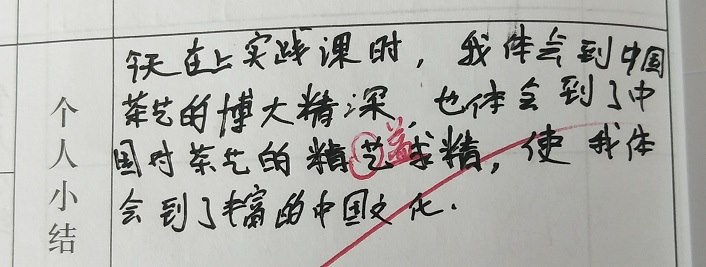 个人小结
今天在上实践课时，我体会到中国
茶艺的博大精深，也体会到了中
国对茶艺的精艺求精，使我体
益
会到了丰富的中国文化.